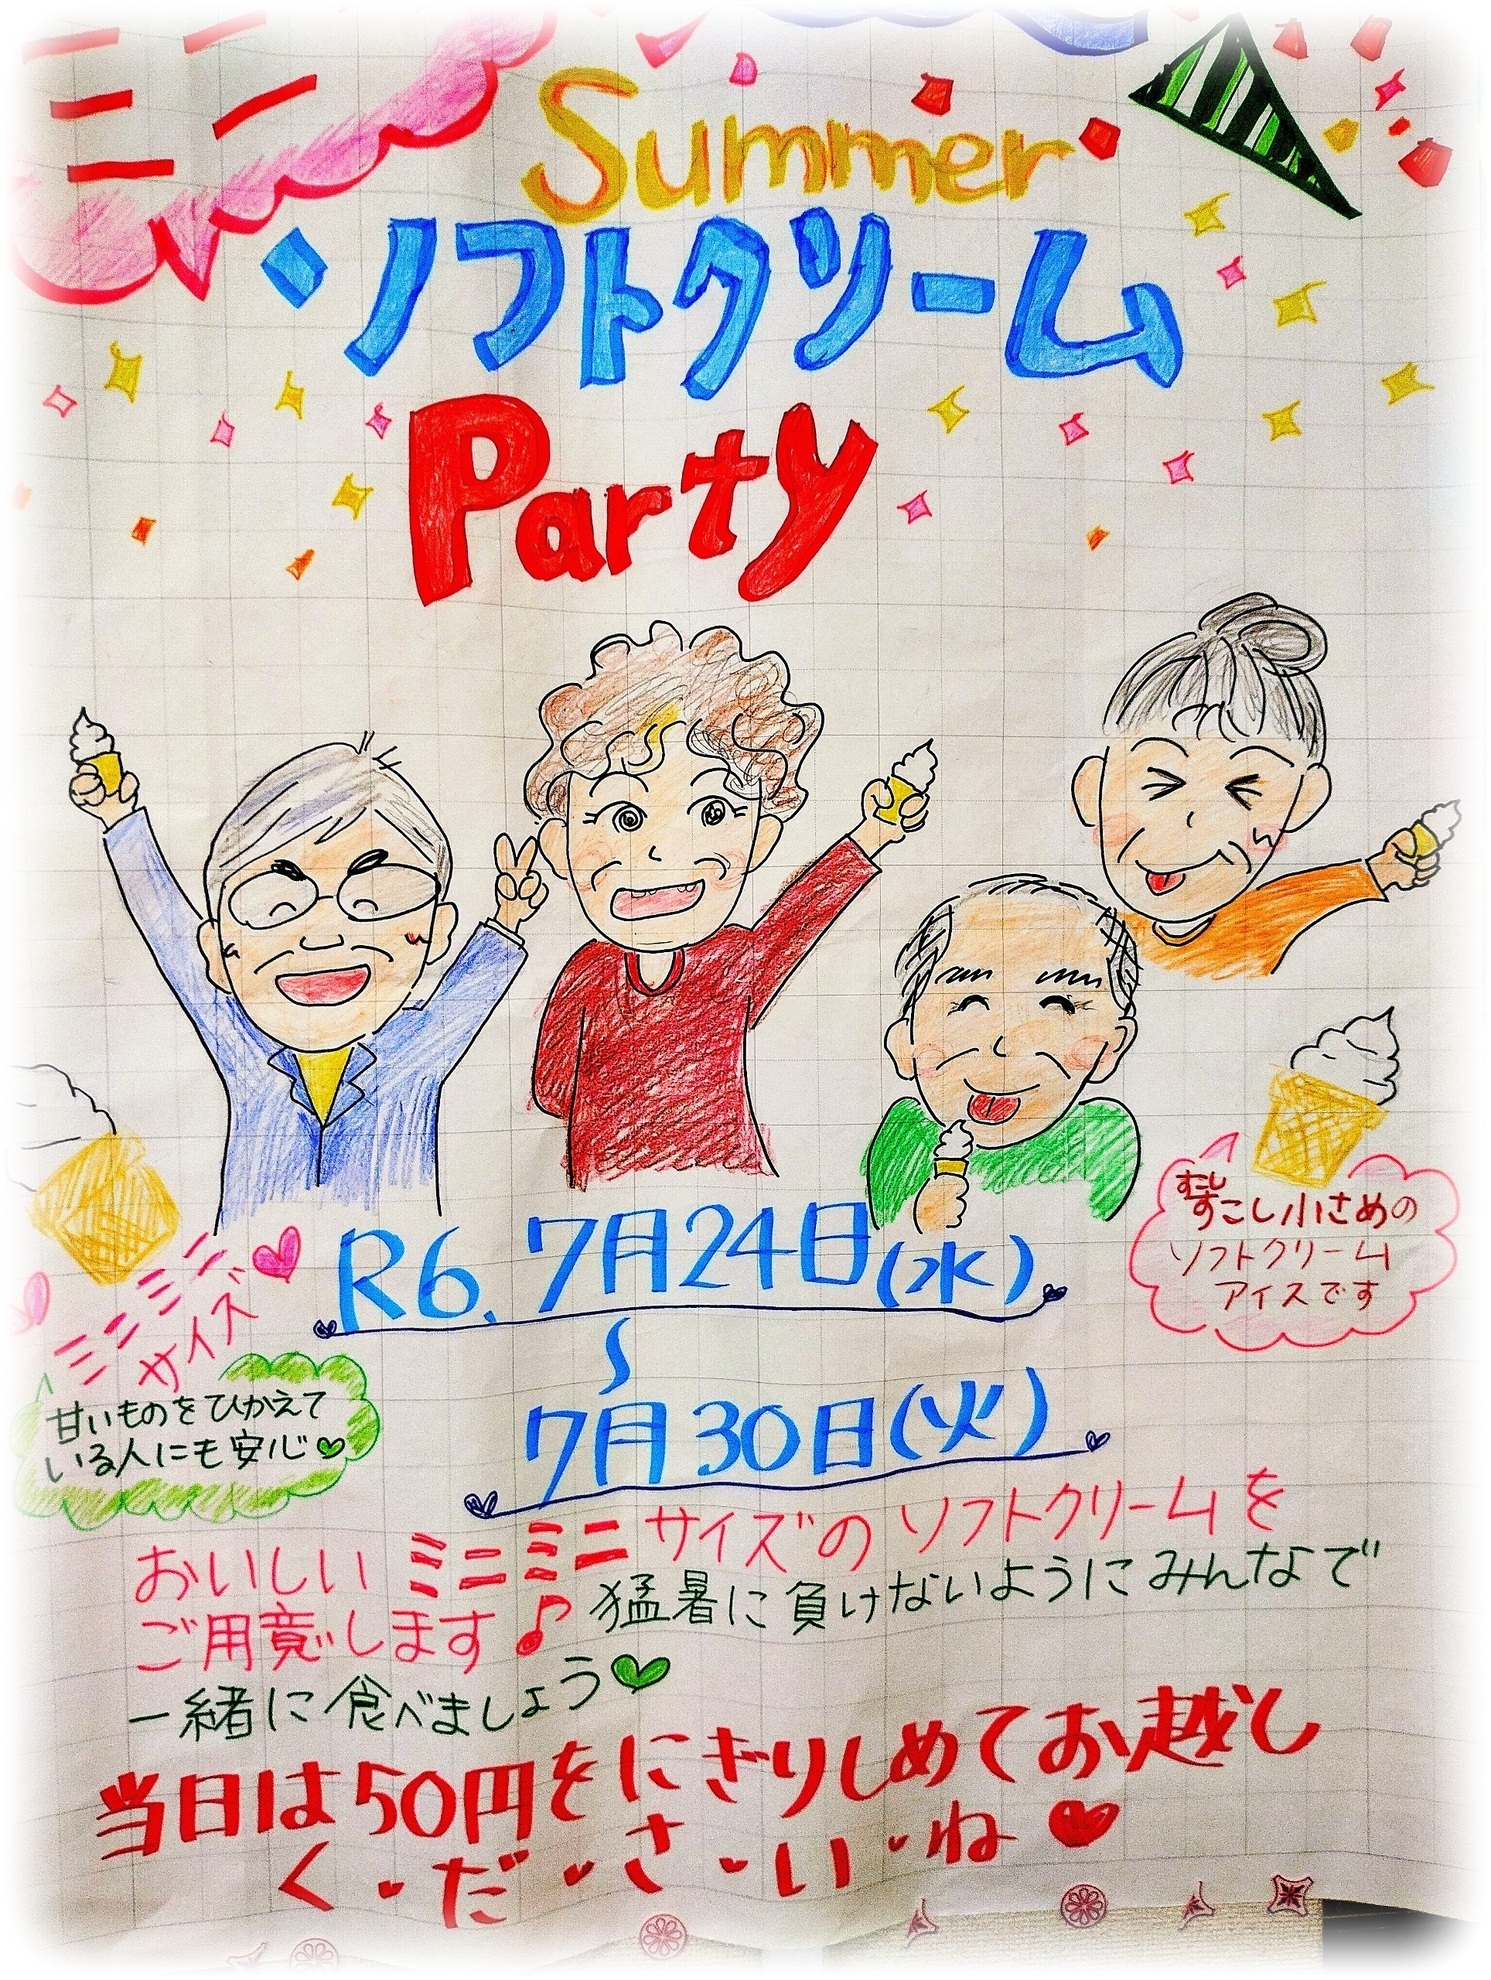 ミニ
ミニ
Summer
ソフトクリーム
Party
R6.7月24日(水)
〜
7月30日(火)
すこし
すこし小さめの
ソフトクリーム
アイスです
ミニミニ
サイズ
甘いものをひかえて
いる人にも安心
おいしいミニミニサイズのソフトクリームを
ご用意します♪猛暑に負けないようにみんなで
一緒に食べましょう
当日は50円をにぎりしめてお越し
く・だ・さ・い・ね